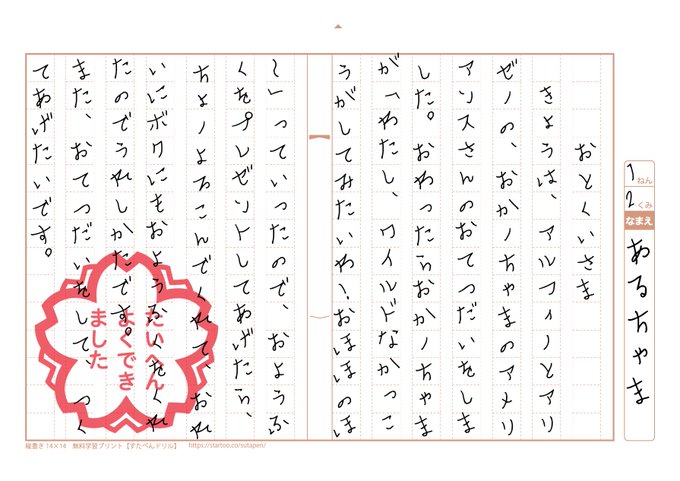 1ねん
2くみ
なまえ
あるちゃま
おとくいさま
きょうは、アルフィノとアリ
ゼーの、おかーちゃまのアメリ
アンスさんのおてつだいをしま
した。おわったらおかーちゃま
が「わたし、ワイルドなかっこ
うがしてみたいわ~おほほのほ
~」っていったので、おようふ
くをプレゼントしてあげたら、
ちょーよろこんでくれて、おれ
いにボクにもおようふくをくれ
たのでうれしかたです。
また、おてつだいをして、つく
てあげたいです。
たいへん
よくでき
ました
縦書き 14×14 無料学習プリント【すたぺんドリル】 https://startoo.co/sutapen/